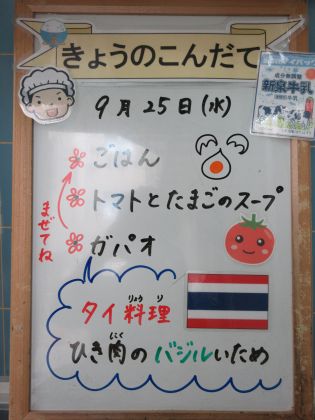 きょうのこんだて
成分無調整
新泉牛乳
9月25日(水)
ごはん
トマトとたまごのスープ
まぜてね
ガパオ
タイ料理
りょうり
ひき肉のバジルいため
にく